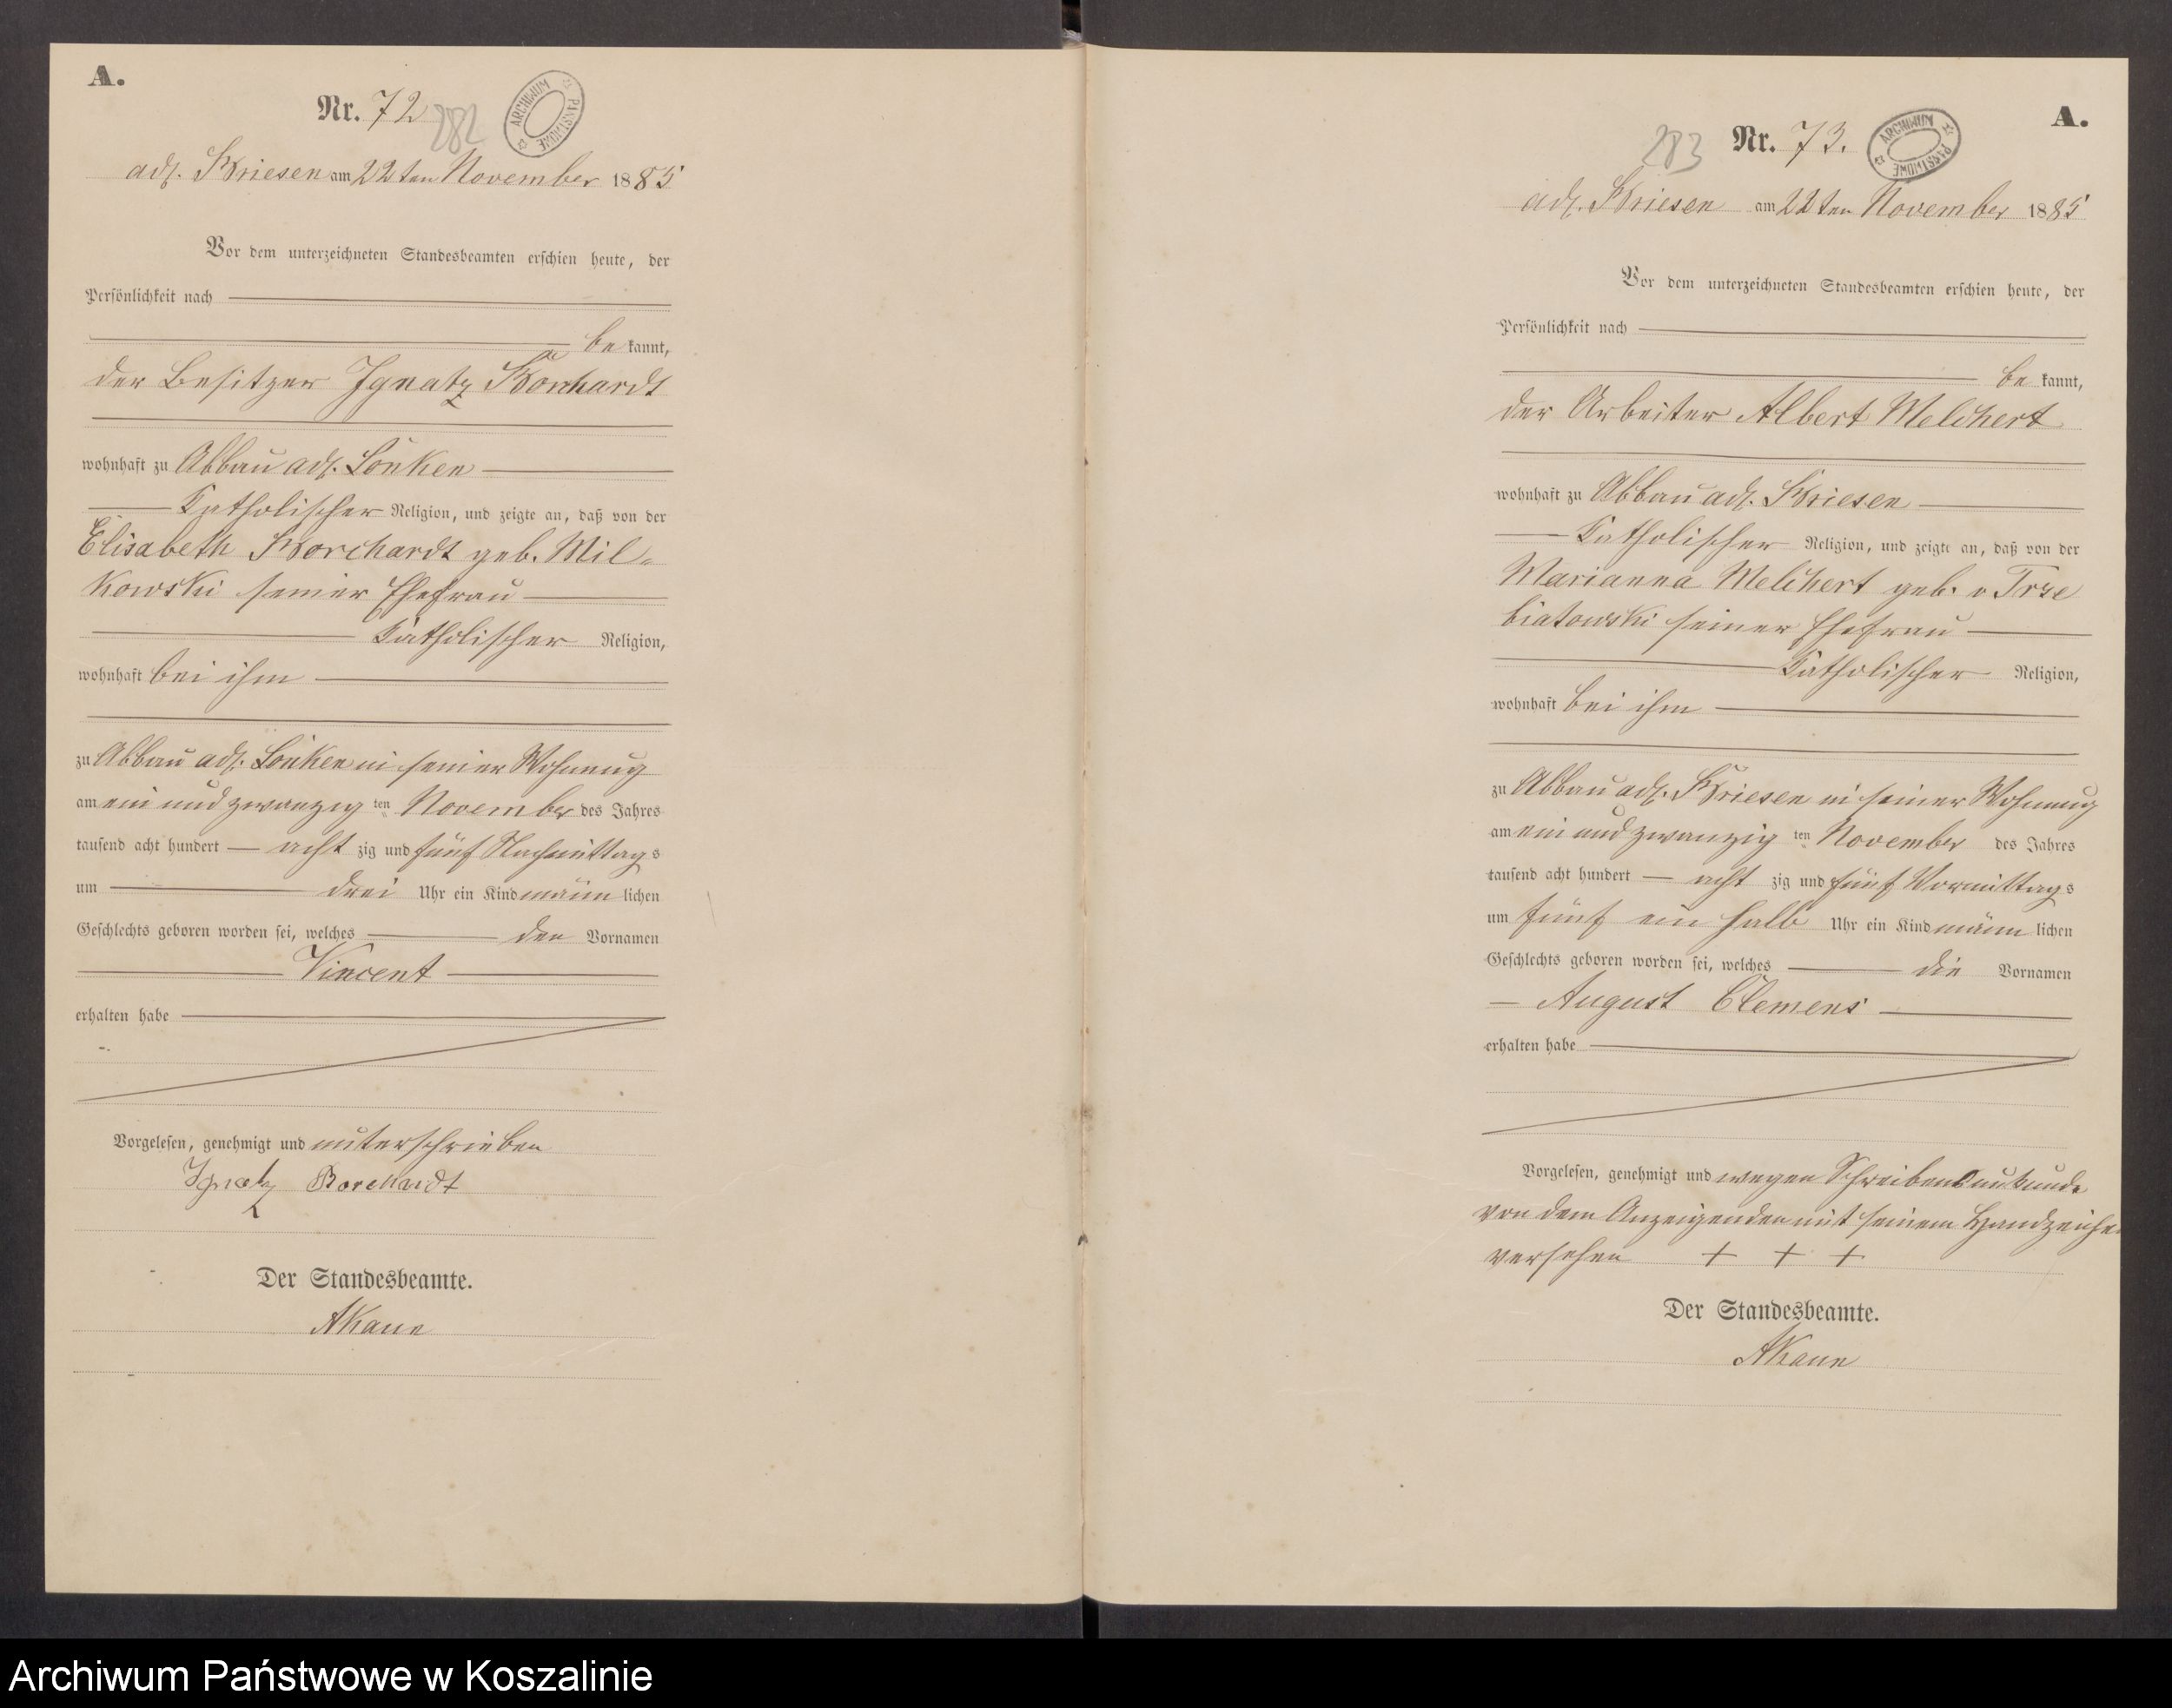 A.
Nr. 72
282
ARCHIWUM PAŃSTWOWE
adl. Briesen am 22ten November 1885
Vor dem unterzeichneten Standesbeamten erschien heute, der
Persönlichkeit nach
be kannt,
der Besitzer Ignatz Borchardt
wohnhaft zu Abbau adl. Lonken
Katholischer Religion, und zeigte an, daß von der
Elisabeth Borchardt geb. Mil-
kowski seiner Ehefrau
Katholischer Religion,
wohnhaft bei ihm
zu Abbau adl. Lonken in seiner Wohnung
am ein und zwanzig ten November des Jahres
tausend acht hundert acht zig und fünf Nachmittags
um drei Uhr ein Kind männ lichen
Geschlechts geboren worden sei, welches den Vornamen
Vincent
erhalten habe
Vorgelesen, genehmigt und unterschrieben
Ignatz Borchardt
Der Standesbeamte.
A.
Nr. 73.
283
ARCHIWUM PAŃSTWOWE
adl. Briesen am 22ten November 1885
Vor dem unterzeichneten Standesbeamten erschien heute, der
Persönlichkeit nach
be kannt,
der Arbeiter Albert Melchert
wohnhaft zu Abbau adl. Briesen
Katholischer Religion, und zeigte an, daß von der
Marianna Melchert geb. v Trze
biatowski seiner Ehefrau
Katholischer Religion,
wohnhaft bei ihm
zu Abbau adl. Briesen in seiner Wohnung
am ein und zwanzig ten November des Jahres
tausend acht hundert acht zig und fünf Vormittags
um fünf ein halb Uhr ein Kind männ lichen
Geschlechts geboren worden sei, welches die Vornamen
August Clemens
erhalten habe
Vorgelesen, genehmigt und wegen Schreibensunkunde
von dem Anzeigenden mit seinem Handzeichen
versehen + + +
Der Standesbeamte.
Archiwum Państwowe w Koszalinie